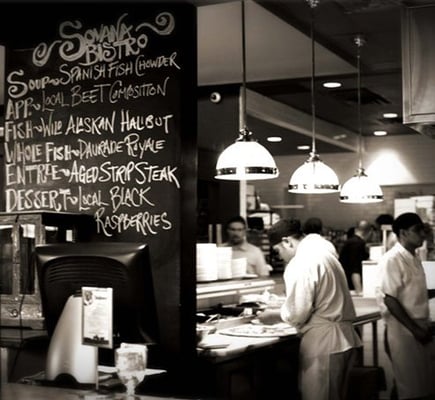 SONANA
BISTRO
SOUP~ SPANISH FISH CHOWDER
APP.~ LOCAL BEET COMPOSITION
FISH~ WILD ALASKAN HALIBUT
WHOLE FISH~ DAURADE ROYALE
ENTREE~ AGED STRIP STEAK
DESSERT~ LOCAL BLACK
RASPBERRIES